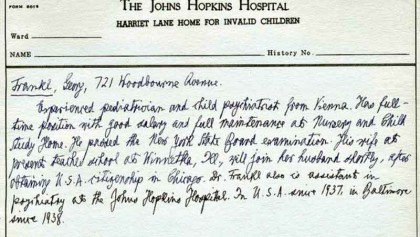 FORM 8014
THE JOHNS HOPKINS HOSPITAL
HARRIET LANE HOME FOR INVALID CHILDREN
Ward
NAME History No.
Frankl, Georg, 721 Woodbourne Avenue.
Experienced pediatrician and child psychiatrist from Vienna. Has full-
time position with good salary and full maintenance at Nursery and Child
Study Home. He passed the New York State Board examination. His wife at
present teaches school at Winnetka, Ill, will join her husband shortly, after
obtaining U.S.A. citizenship in Chicago. Dr. Frankl also is assistant in
psychiatry at the Johns Hopkins Hospital. In U.S.A. since 1937, in Baltimore
since 1938.